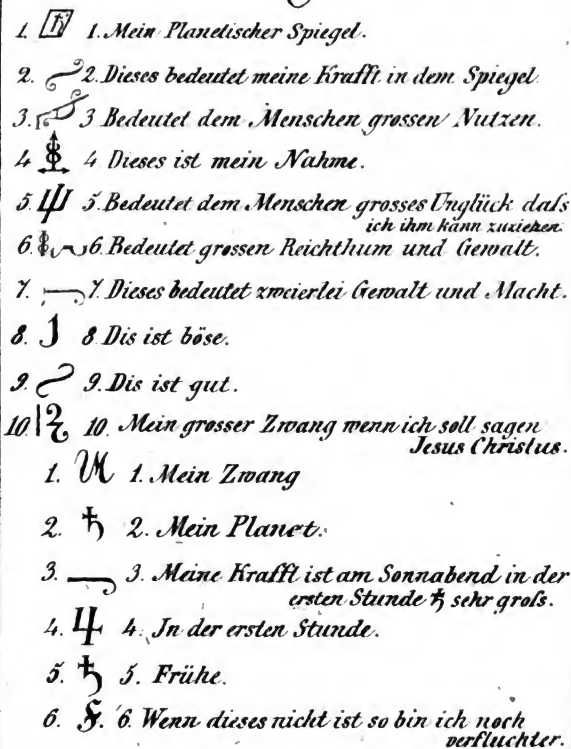 1. ♄ 1. Mein Planetischer Spiegel.
2. 2. Dieses bedeutet meine Krafft in dem Spiegel
3. 3 Bedeutet dem Menschen grossen Nutzen.
4 4 Dieses ist mein Nahme.
5. 5. Bedeutet dem Menschen grosses Unglück daſs
ich ihm kann zuziehen.
6. 6. Bedeutet grossen Reichthum und Gewalt.
7. 7. Dieses bedeutet zweierlei Gewalt und Macht.
8. 8 Dis ist böse.
9. 9. Dis ist gut.
10 10. Mein grosser Zwang wenn ich soll sagen
Jesus Christus.
1. 1. Mein Zwang
2. ♄ 2. Mein Planet.
3. 3. Meine Krafft ist am Sonnabend in der
ersten Stunde ♄ sehr groſs.
4. ♃ 4. Jn der ersten Stunde.
5. ♄ 5. Frühe.
6. 6. Wenn dieses nicht ist so bin ich noch
verfluchter.